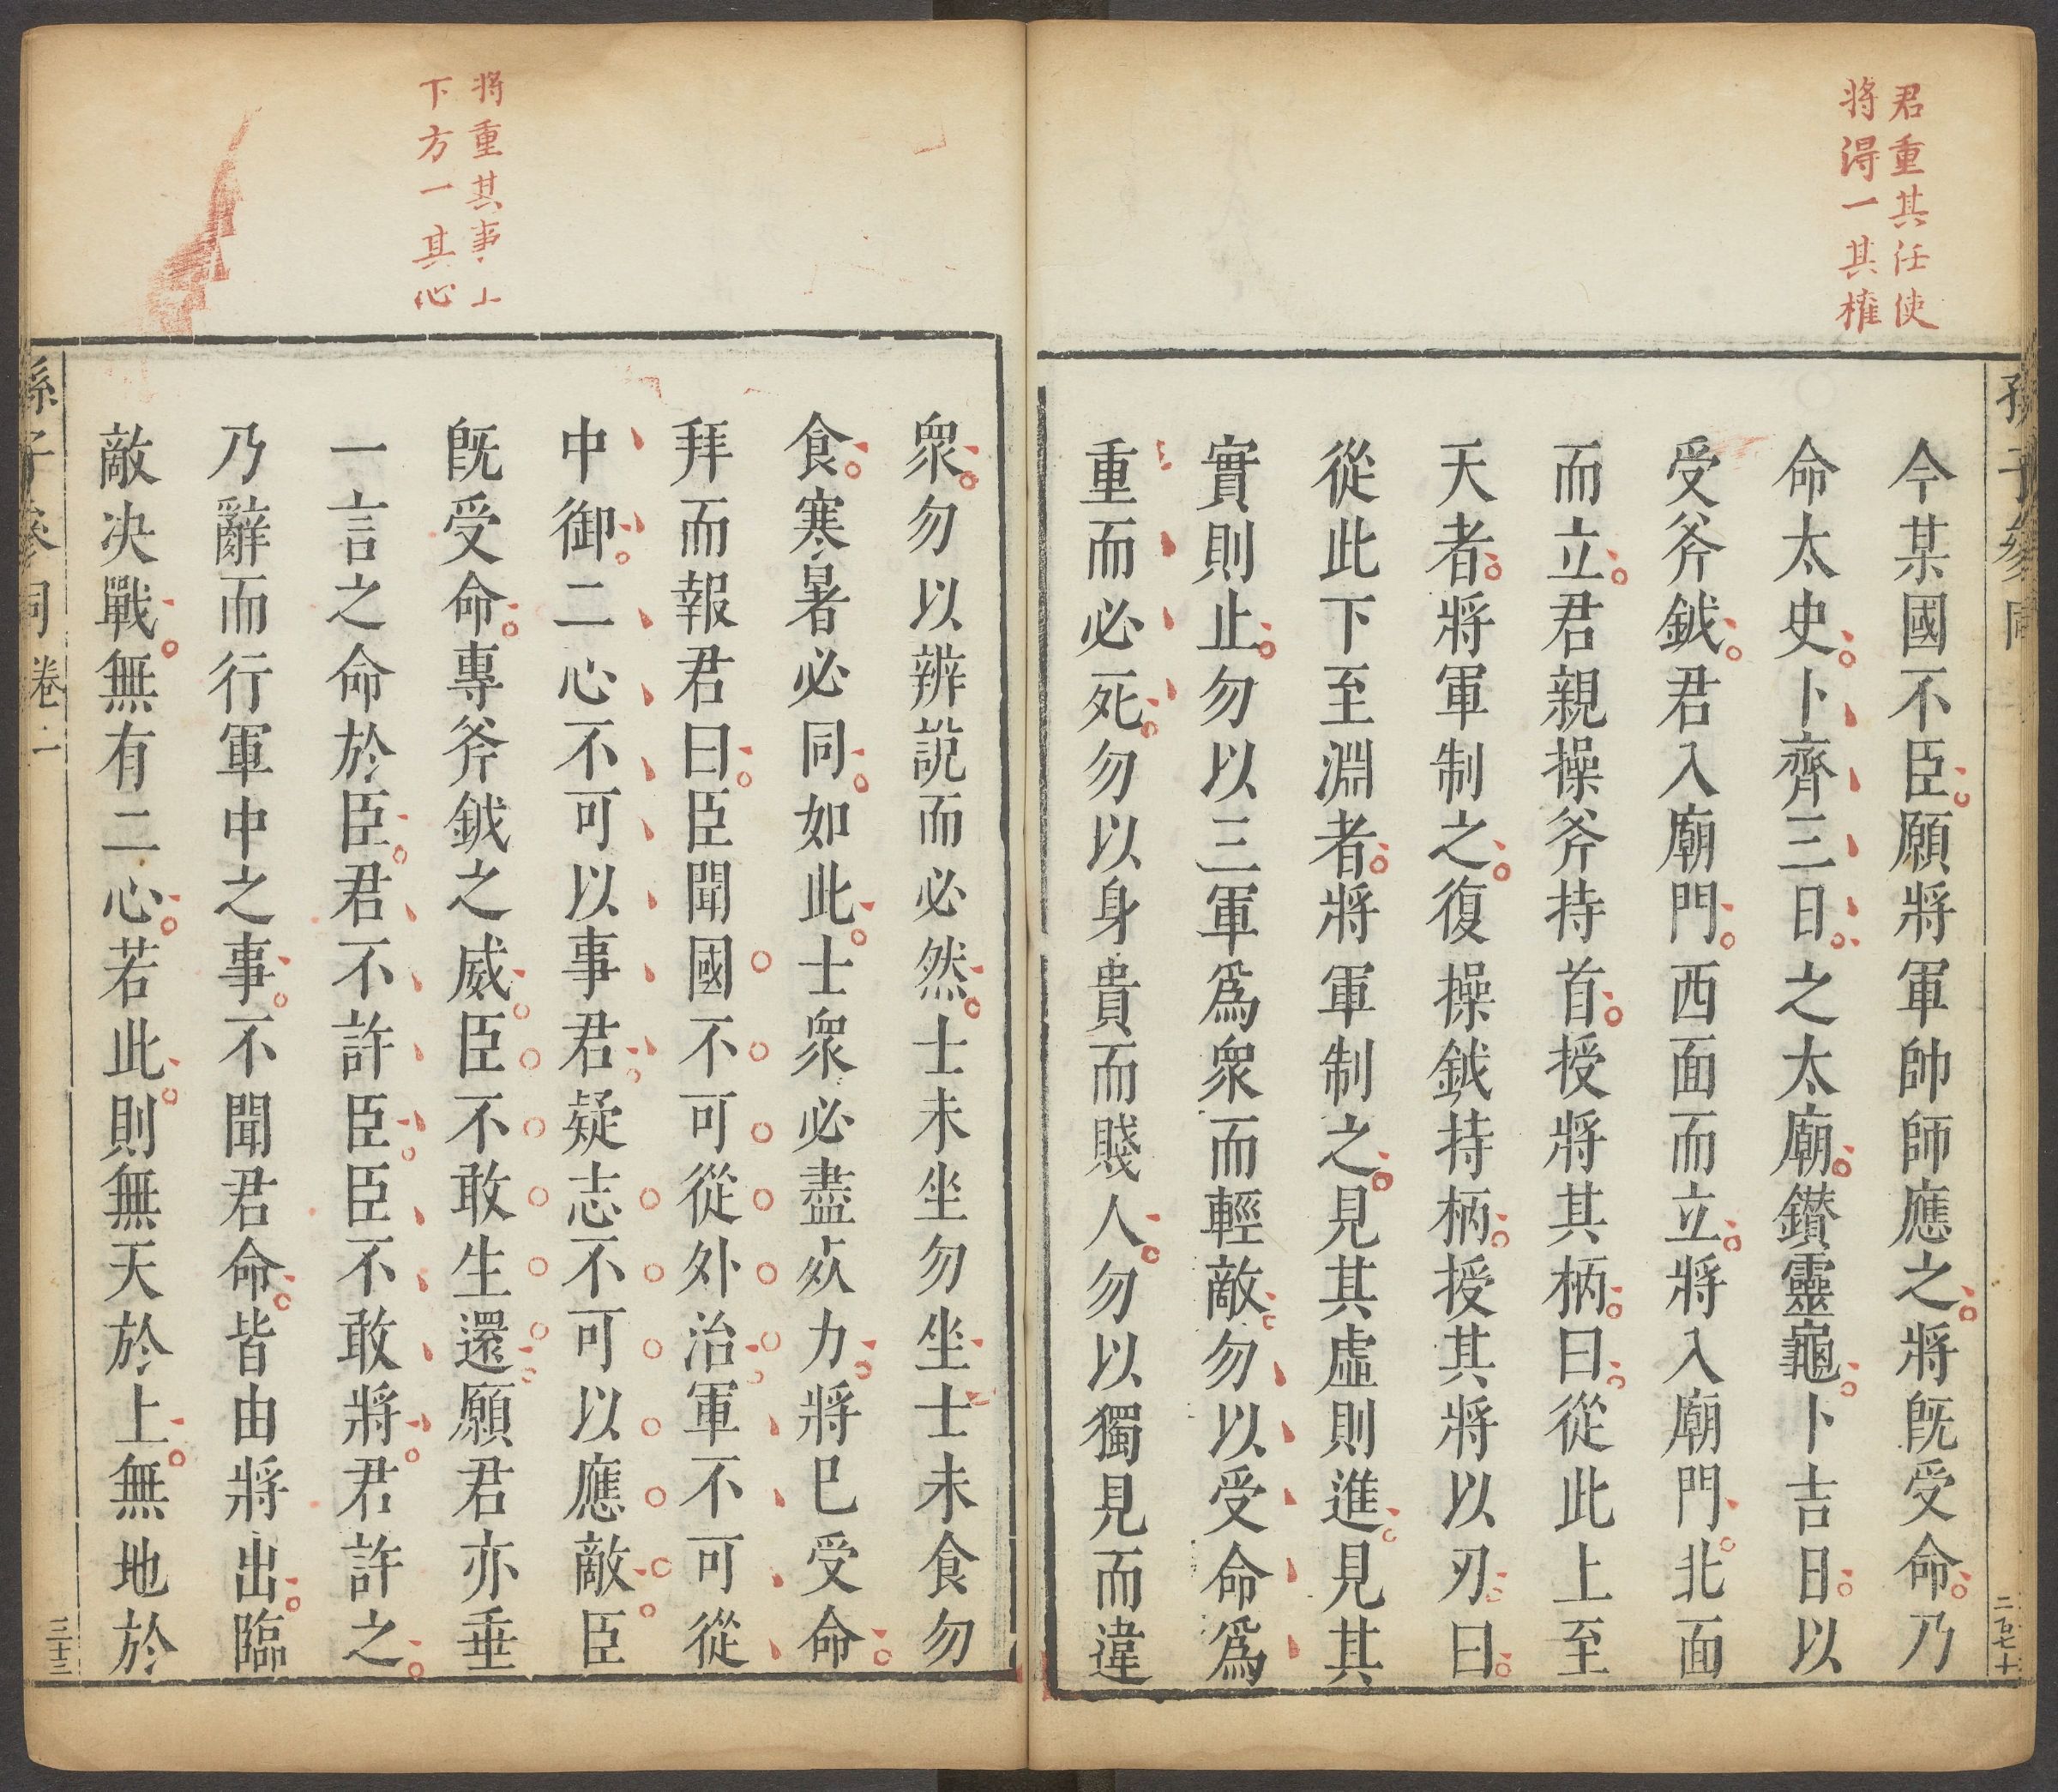 君重其任使
將得一其權
今某國不臣願將軍帥師應之將旣受命乃
命太史卜齊三日之太廟鑚靈龜卜吉日以
受斧鉞君入廟門西面而立將入廟門北面
而立君親操斧持首授將其柄曰從此上至
天者將軍制之復操鉞持柄授其將以刃曰
從此下至淵者將軍制之見其虛則進見其
實則止勿以三軍爲衆而輕敵勿以受命爲
重而必死勿以身貴而賤人勿以獨見而違
將重其事上
下方一其心
衆勿以辨說而必然士未坐勿坐士未食勿
食寒暑必同如此士衆必盡𣦸力將巳受命
拜而報君曰臣聞國不可從外治軍不可從
中御二心不可以事君疑志不可以應敵臣
旣受命專斧鉞之威臣不敢生還願君亦垂
一言之命於臣君不許臣臣不敢將君許之
乃辭而行軍中之事不聞君命皆由將出臨
敵决戰無有二心若此則無天於上無地於
孫子參同 卷二
三十三